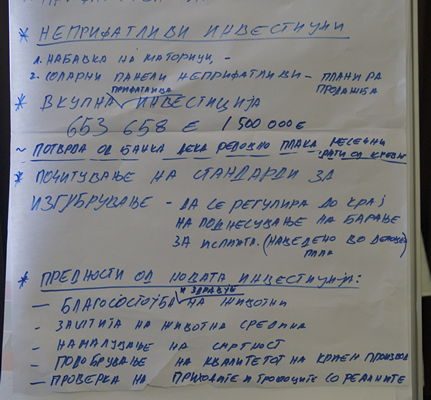 * НЕПРИФАТЛИВИ ИНВЕСТИЦИИ
1. НАБАВКА НА МАТОРИЦИ, -
2. СОЛАРНИ ПАНЕЛИ НЕПРИФАТЛИВИ - ПЛАНИРА
ПРОДАЖБА
ПРИФАТЛИВА
* ВКУПНА ИНВЕСТИЦИЈА
653 658 € 1 500 000 €
~ ПОТВРДА ОД БАНКА ДЕКА РЕДОВНО ПЛАКА МЕСЕЧНИ
РАТИ ОД КРЕДИТ
* ПОЧИТУВАЊЕ НА СТАНДАРДИ ЗА
ИЗГУБРУВАЊЕ - ДА СЕ РЕГУЛИРА ДО КРАЈ
НА ПОДНЕСУВАЊЕ НА БАРАЊЕ
ЗА ИСПЛАТА. (НАВЕДЕНО ВО
* ПРЕДНОСТИ ОД НОВАТА ИНВЕСТИЦИЈА:
И ЗДРАВЈЕ
— БЛАГОСОСТОЈБА НА ЖИВОТНИ
- ЗАШТИТА НА ЖИВОТНА СРЕДИНА
- НАМАЛУВАЊЕ НА СМРТНОСТ
- ПОДОБРУВАЊЕ НА КВАЛИТЕТОТ НА КРАЕН ПРОИЗВОД
- ПРОВЕРКА НА ПРИХОДИТЕ И ТРОШОЦИТЕ СО РЕАЛНИТЕ